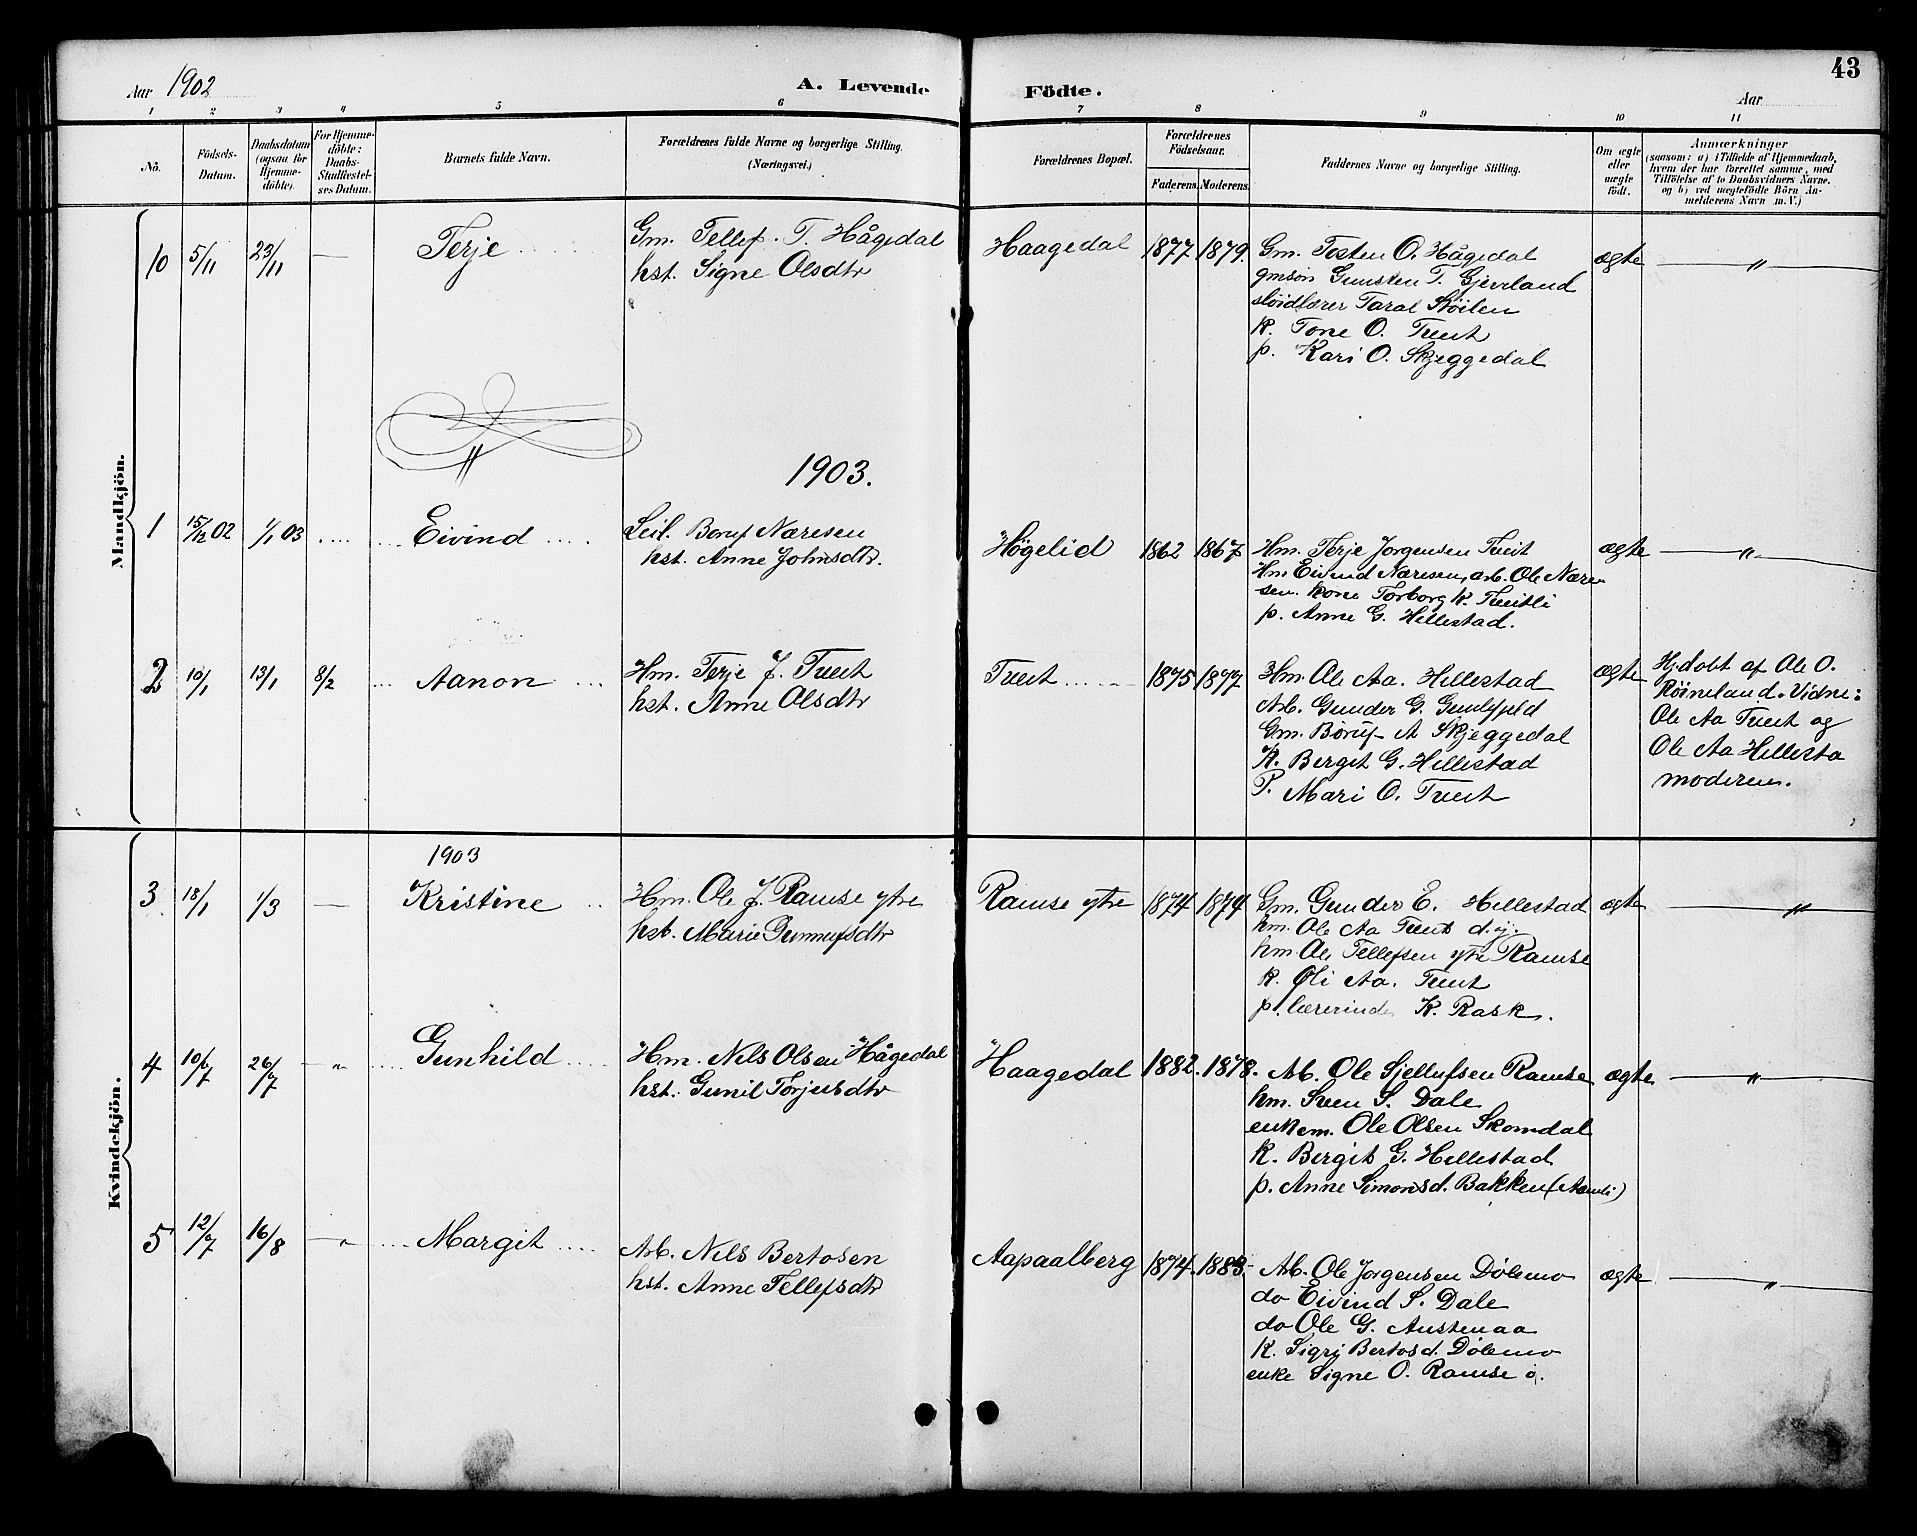 43
Aar 1902
A. Levende Födte.
Aar
1 2 3 4 5 6 7 8 9 10 11
No.
Födsels-
Datum.
Daabsdatum
(ogsaa for
Hjemme-
döbte).
For Hjemme-
döbte:
Daabs-
Stadfæstel-
ses Datum.
Barnets fulde Navn.
Forældrenes fulde Navne og borgerlige Stilling.
(Næringsvei.)
Forældrenes Bopæl.
Forældrenes
Födselsaar.
Faderens.
Moderens.
Faddernes Navne og borgerlige Stilling.
Om ægte
eller
uægte
födt.
Anmærkninger
(saasom: a) i Tilfælde af Hjemmedaab,
hvem der har forrettet samme, med
Tilföielse af to Daabsvidners Navne,
og b) ved uægtefödte Börn An-
melderens Navn m. V.)
Mandkjön.
10 5/11 23/11 — Terje
Gm. Tellef. T. Hågedal
hst. Signe Olsdtr
Haagedal 1877 1879.
Gm. Tosten O. Hågedal
gmsön Gunsten T. Gjeveland
sløidlærer Taral Støilen
K. Tone O. Tveit
p. Kari O. Skjeggedal
ægte — " —
1903.
1 15/12 02 1/1 03 Eivind
Leil. Boruf Næresen
hst. Anne Johnsdtr.
Högelid 1862 1867
Hm. Terje Jorgensen Tveit
Hm Eivind Næresen, arb. Ole Nære-
sen. Kone Torborg K. Tveitli
p. Anne G. Hillestad.
ægte — " —
2 10/1 13/1 8/2 Aanon
Hm. Terje J. Tveit
hst. Anne Olsdtr
Tveit 1875 1877
Hm. Ole Aa. Hillestad
Arb. Gunder G.
Gm. Böruf A Skjeggedal
K. Bergit G. Hillestad
P. Mari O. Tveit
ægte
Hj.döbt af Ole O.
Röineland. Vidne:
Ole Aa Tveit og
Ole Aa Hillesta
moderen.
Kvindekjön.
1903
3 18/1 1/3 — Kristine
Hm. Ole J. Ramse ytre
hst. Marie Gunnufsdtr
Ramse ytre 1874 1874
Gm. Gunder E. Hillestad
hm. Ole Aa Tveit d.y.
hm Ole Tellefsen ytre Ramse
K. Oli Aa. Tveit
p. lærerinde K. Rask.
ægte — " —
4 10/7 26/7 — " — Gunhild
Hm. Nils Olsen Hågedal
hst. Gunil Torjusdtr
Haagedal 1882. 1878.
Arb. Ole Sjellufsen Ramse
hm. Sven S. Dale
enkem. Ole Olsen Skomdal
K. Bergit G. Hillestad
p. Anne Simonsd. Bakken (Aamli)
ægte — " —
5 12/7 16/8 — " — Margit
Arb. Nils Bertosen
hst. Anne Tellefsdtr
Aapaalberg 1874. 1883.
Arb. Ole Jorgensen Dölemo
do Eivind S. Dale
do Ole G. Austenaa
K. Sigri Bertosd. Dölemo
enke Signe O. Ramse i.
ægte — " —